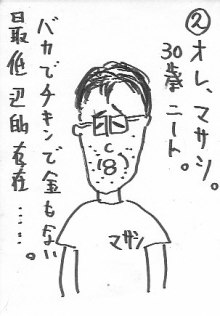 ②オレ、マサシ。
30歳 ニート。
バカでチキンで金もない
最低辺的存在……。
マサシ